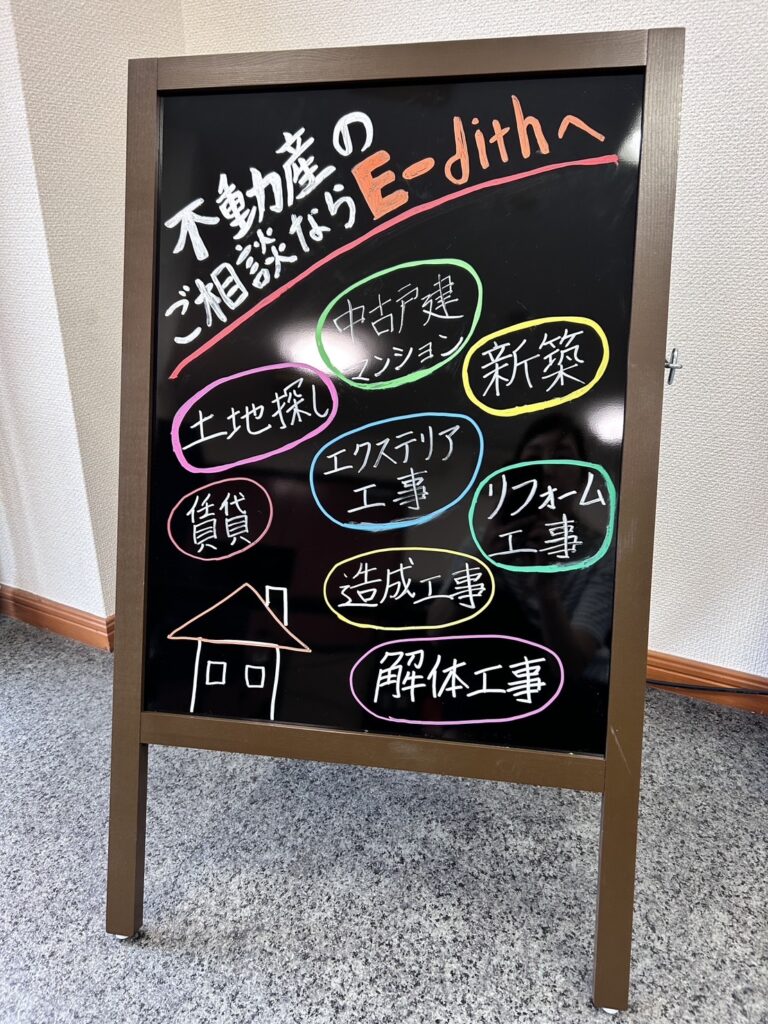 不動産の
ご相談ならE-dithへ
中古戸建
マンション
新築
土地探し
エクステリア
工事
リフォーム
工事
賃貸
造成工事
解体工事